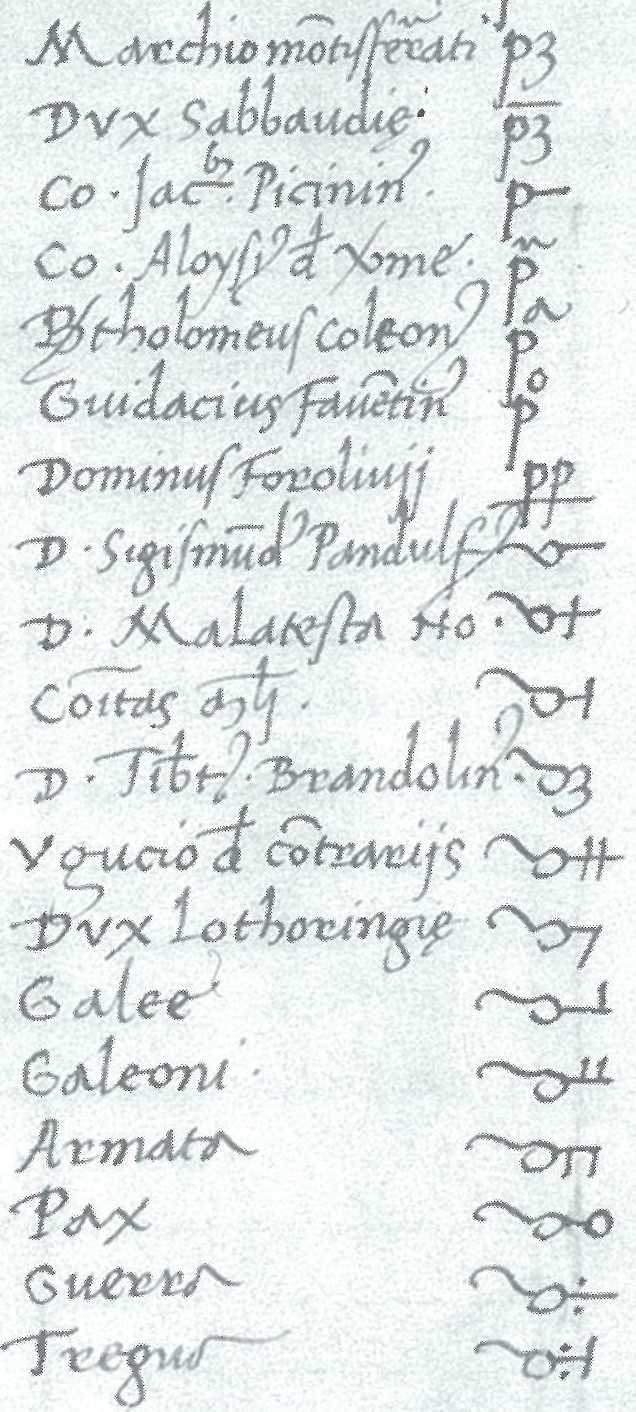 Marchio mõtisferrati p3
Dvx Sabbaudię p3
Co. Jac⁹. Picinin⁹ p
Co. Aloysi⁹ d Xvme. p
Btholomeus coleon⁹ pa
Guidacius Favẽtin⁹ po
Dominus Foroliuij pp
D. Sigismũd⁹ Pandulf⁹
D. Malatesta No.
Coĩtas
D. Tibt⁹. Brandolin⁹.
Vgucio d cõtrarijs
Dvx Lothoringię
Galee
Galeoni
Armata
Pax
Guerra
Tregua